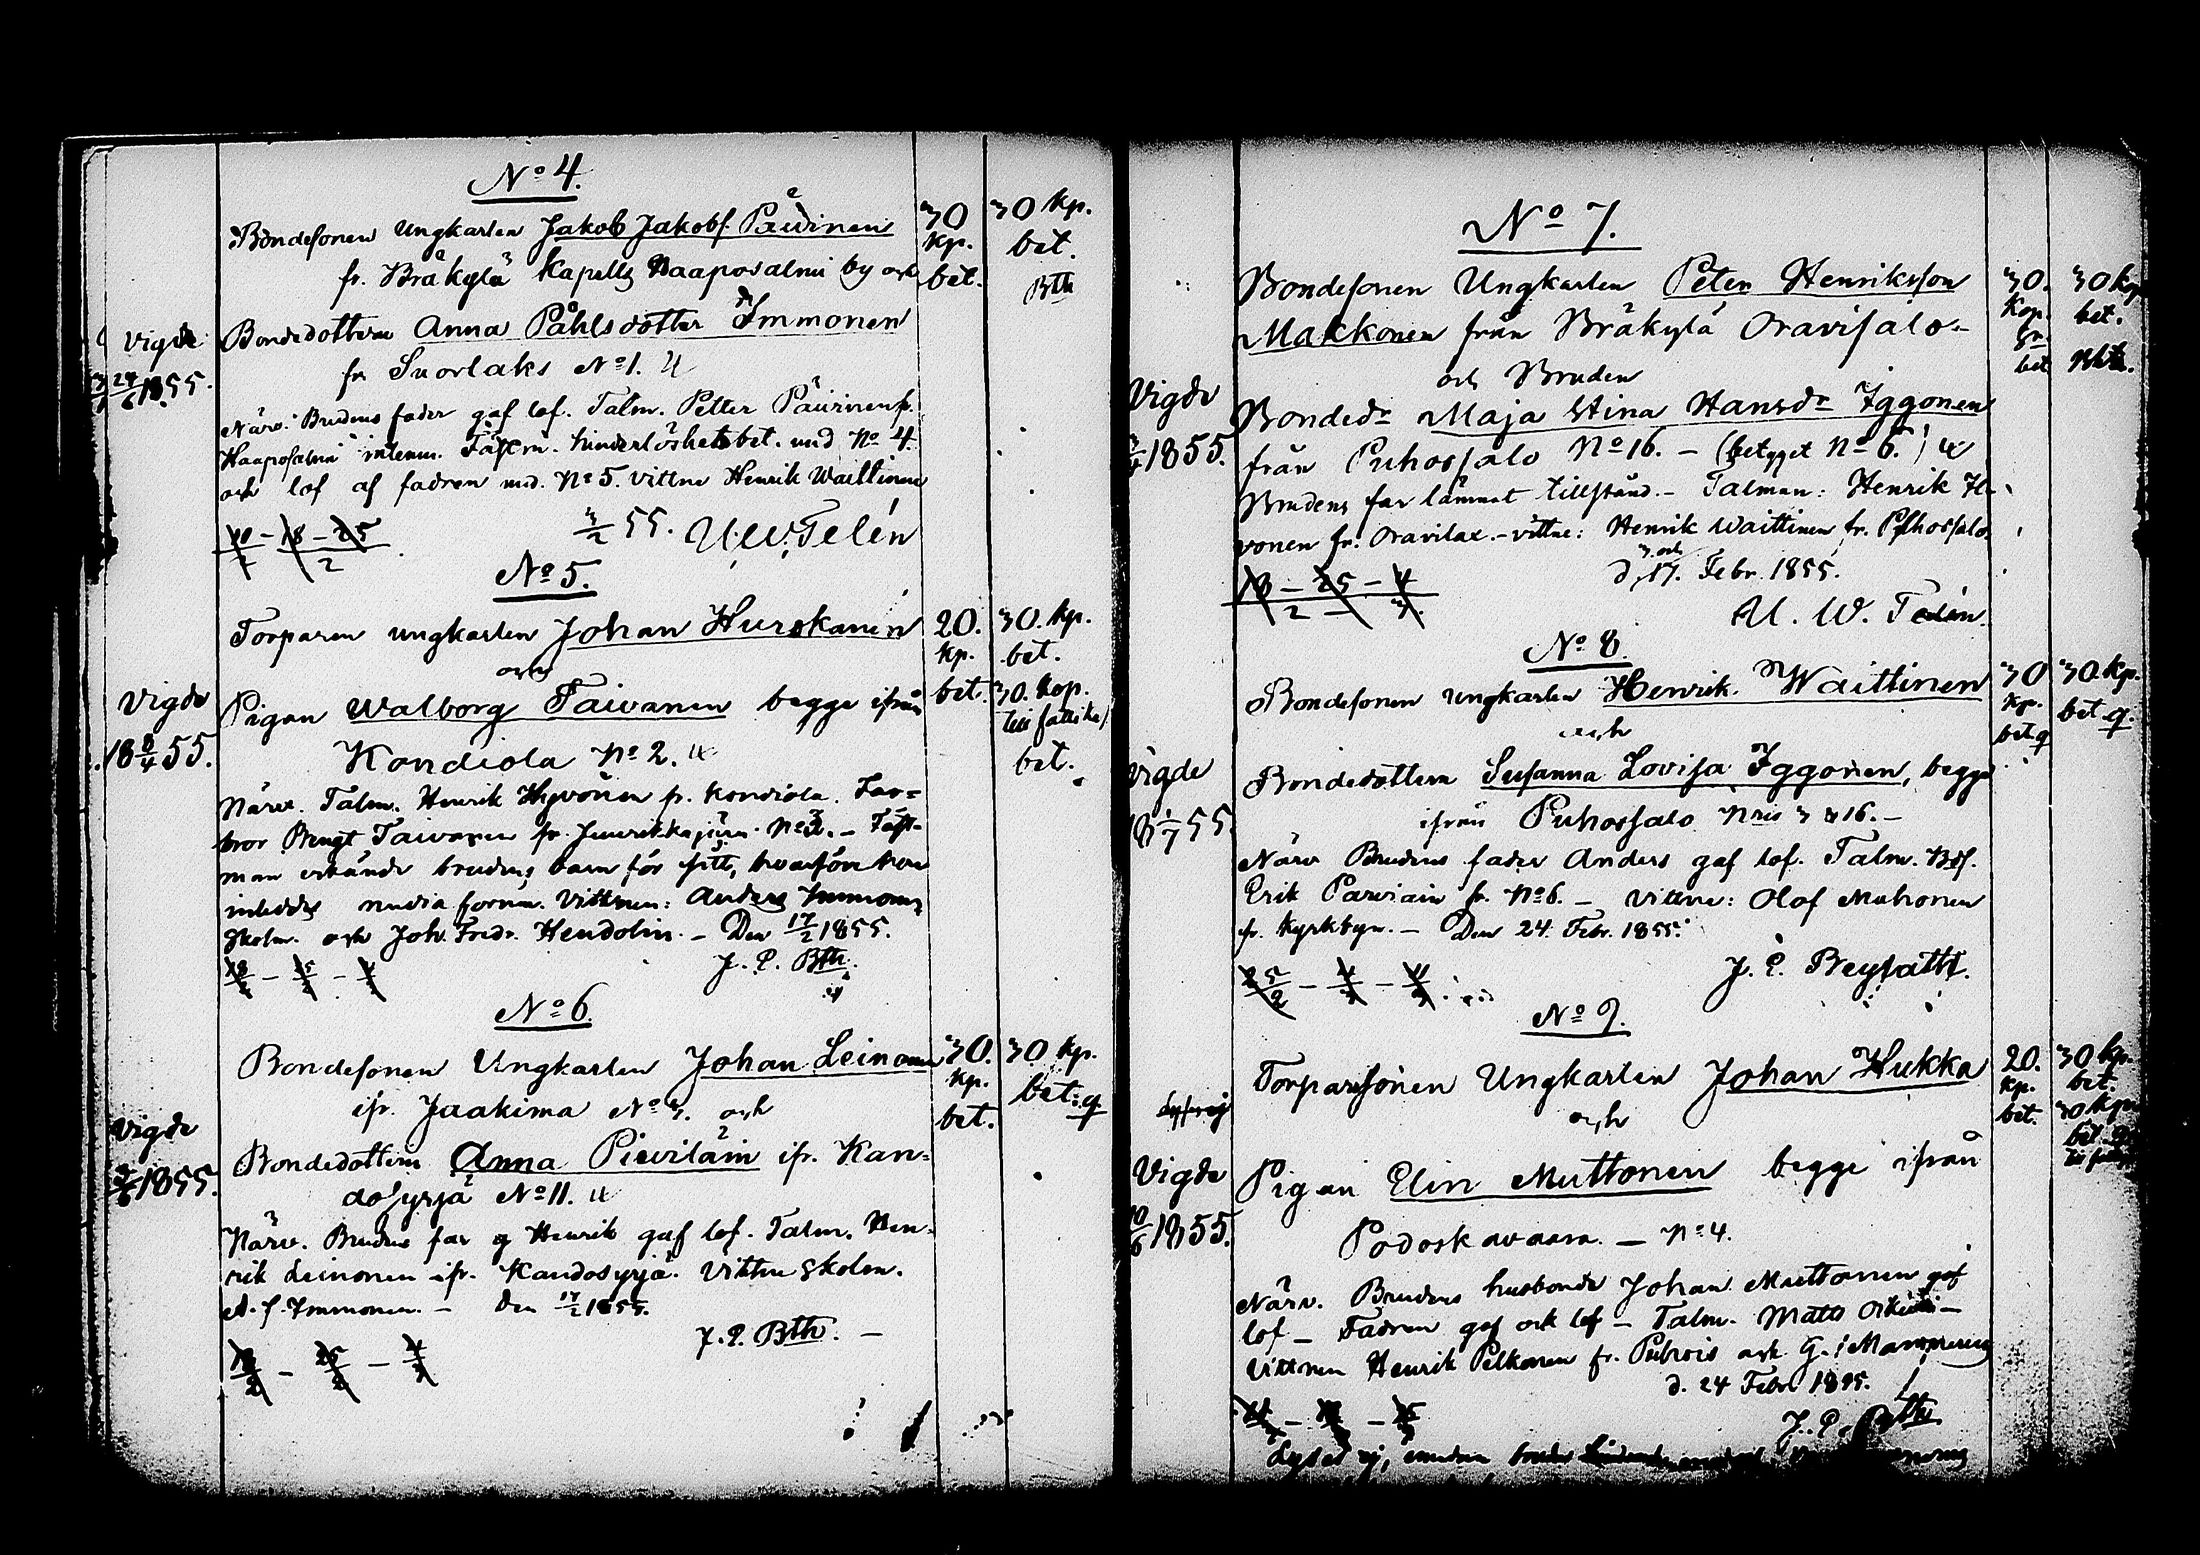 No 4.
Bondesonen Ungkarlen Jakob Jakobs. Päivinen
fr. Bräkylä Kapells Haaposalmi by och
Bondedottern Anna Påhlsdotter Immonen
fr. Suorlaks No 1.
Närv. Brudens fader gaf lof. Talm. Petter Päivinen fr.
Haaposalmi intenn. Fästm. hinderlöshetsbet. med No 4
och lof af fadren med. No 5. vittne Henrik Waittinen
18 – 25
2
3/2 55. U. W. Telén
30
kp.
bet.
30 kp.
bet.
Bth
Vigde
24/6 1855.
No 5.
Torparen ungkarlen Johan Hurskanen
och
Pigan Walborg Taivanen begge ifrån
Kondiola No 2.
Närv. Talm. Henrik Hyvönen fr. Kondiola. Far=
bror Bengt Taivanen fr. No 3. – Fäst-
man erkände brudens barn för sitt, hvarföre hon
inleddes forum. Vittnen: Anders Immonen
Skolm. och Joh. Fredr. Hendolin. – Den 17/2 1855.
J. P. Bth.
20.
kp.
bet.
30. kp.
bet.
30. kop.
bet.
Vigde
18 8/4 55.
No 6.
Bondesonen Ungkarlen Johan Leinonen
ifr. Jaakima No 3. och
Bondedottern Anna Piiviläin ifr. Kan=
dosyrjä No 11.
Närv. Brudens far Henrik gaf lof. Talm. Hen=
rik Leinonen ifr. Kandosyrjä. Vittne Skolm.
A. J. Immonen. – den 17/2 1855.
J. P. Bth. –
30.
kp.
bet.
30 kp.
bet.
Vigde
1855.
No 7.
Bondesonen Ungkarlen Peter Henriksson
Makkonen från Bräkylä Oravisalo
och Bruden
Bondedr Maja Stina Hansdr Iggonen
från Puhossalo No 16. – (betyget No 6.)
Brudens far lämnat tillstånd. – Talman: Henrik Il-
vonen fr. Oravilax. – vittne: Henrik Waittinen fr. Puhossalo
3 och
d. 17. Febr. 1855.
18 – 25 – 4
U. W. Telén.
30.
Kop.
bet
30 kp
bet.
Vigde
1855.
No 8.
Bondesonen ungkarlen Henrik Waittinen
och
Bondedottern Susanna Lovisa Iggonen, begge
ifrån Puhossalo Nris 3 & 16. –
Närv Brudens fader Anders gaf lof. Talm. Bds.
Erik Parviain fr. No 6. – vittne: Olof Muhonen
fr. Kyrkbyn. – Den 24. Febr. 1855.
25/2
J. P. Beylatti.
30
kp.
bet
30. kp.
bet
Vigde
18 1/7 55
No 9.
Torparesonen Ungkarlen Johan Hukka
och
Pigan Elin Muttonen begge ifrån
Podoskavaara. – No 4.
Närv. Brudens husbonde Johan Muttonen gaf
lof – Fadren gaf ock lof – Talm. Matts
Vittnen Henrik Pelkonen fr. Puhois och G.
d. 24 Febr. 1855.
J. P. Bth
Lystes ej,
20.
kp.
bet.
30 kp.
bet.
30 kp.
bet
Vigde
10/6 1855.